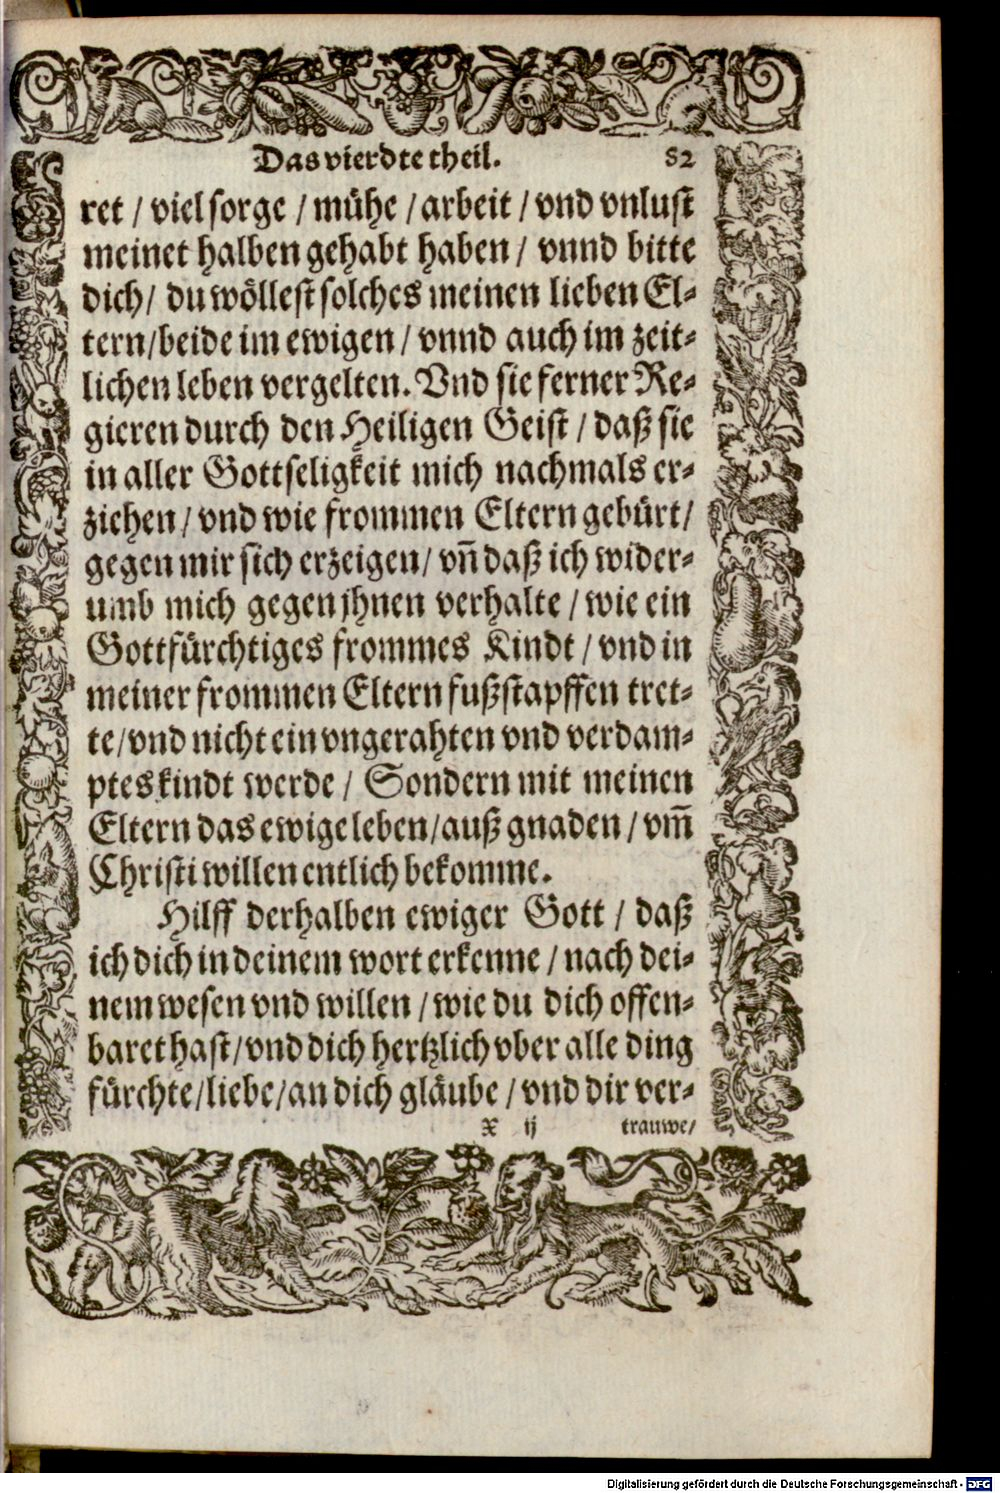 Das vierdte theil. 82
ret / viel sorge / mühe / arbeit / vnd vnlust
meinet halben gehabt haben / vnnd bitte
dich / du wöllest solches meinen lieben El-
tern / beide im ewigen / vnnd auch im zeit-
lichen leben vergelten. Vnd sie ferner Re-
gieren durch den Heiligen Geist / daß sie
in aller Gottseligkeit mich nachmals er-
ziehen / vnd wie frommen Eltern gebürt /
gegen mir sich erzeigen / vñ daß ich wider-
umb mich gegen jhnen verhalte / wie ein
Gottfürchtiges frommes Kindt / vnd in
meiner frommen Eltern fußstapffen tret-
te / vnd nicht ein vngerahten vnd verdam-
ptes kindt werde / Sondern mit meinen
Eltern das ewige leben / auß gnaden / vm̃
Christi willen entlich bekomme.
Hilff derhalben ewiger Gott / daß
ich dich in deinem wort erkenne / nach dei-
nem wesen vnd willen / wie du dich offen-
baret hast / vnd dich hertzlich vber alle ding
fürchte / liebe / an dich gläube / vnd dir ver-
X ij trauwe /
Digitalisierung gefördert durch die Deutsche Forschungsgemeinschaft - DFG